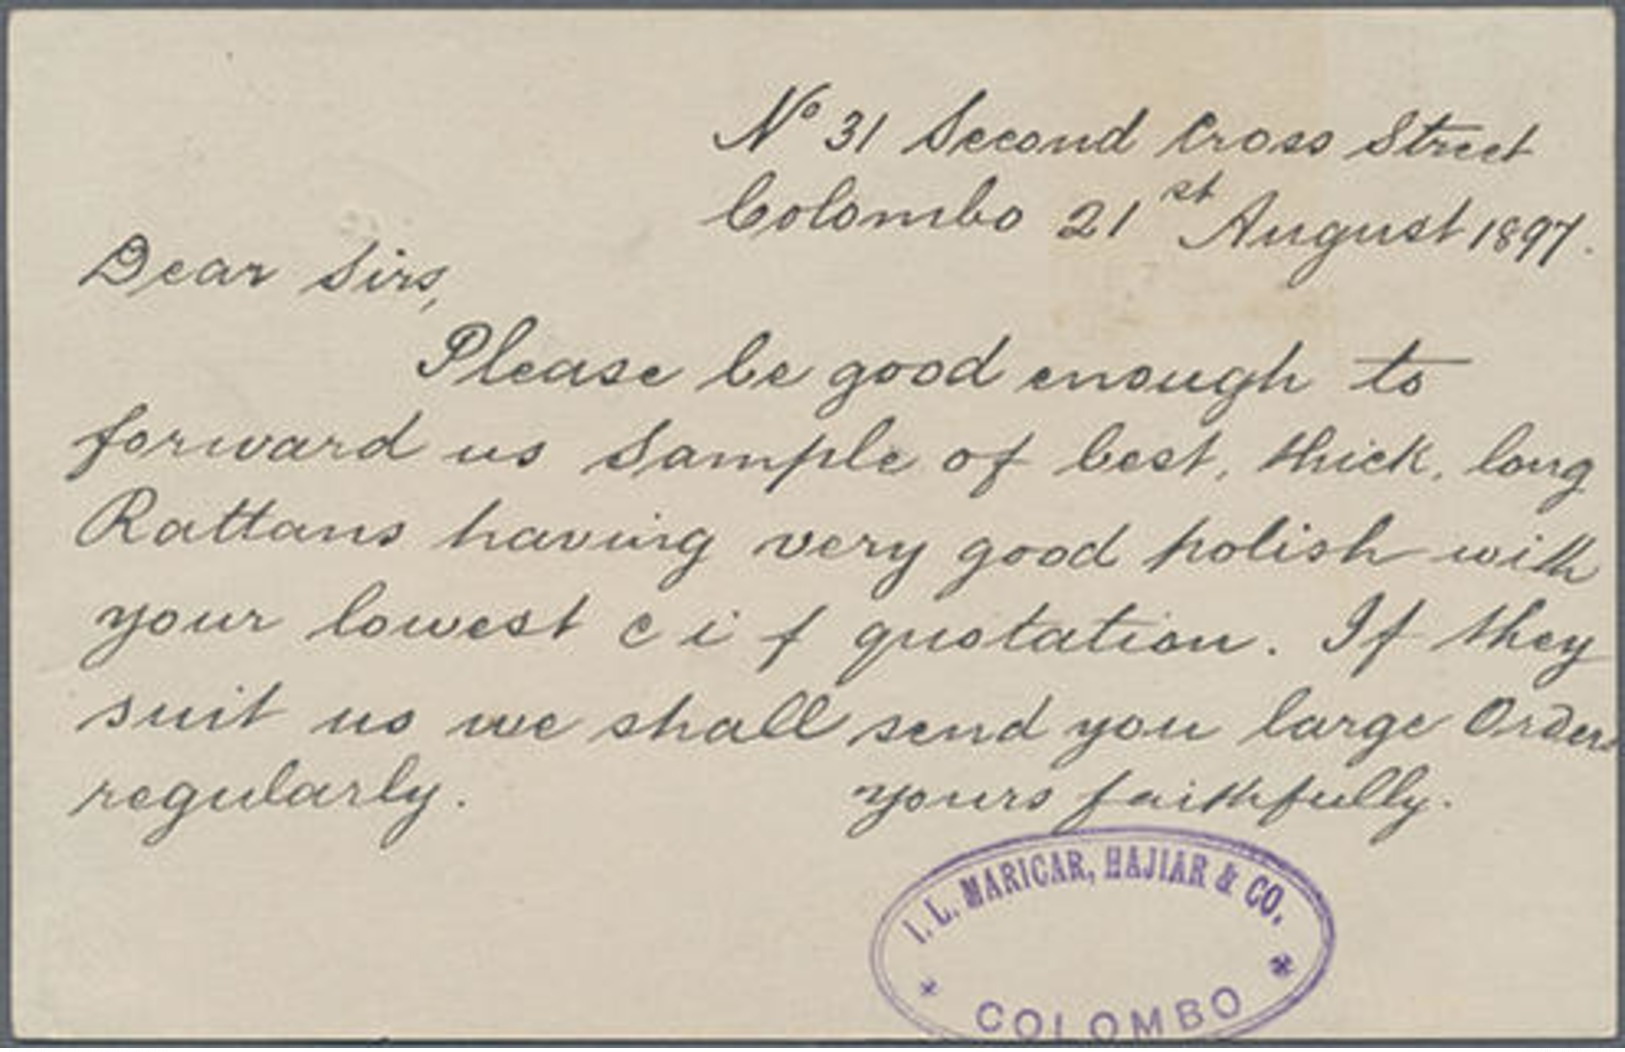 No 31 Second Cross Street
Colombo 21st August 1897.
Dear Sirs,
Please be good enough to
forward us Sample of best, thick, long
Rattans having very good polish with
your lowest c i f quotation. If they
suit us we shall send you large Orders
regularly.
yours faithfully.
I. L. MARICAR, HAJIAR & CO.
COLOMBO